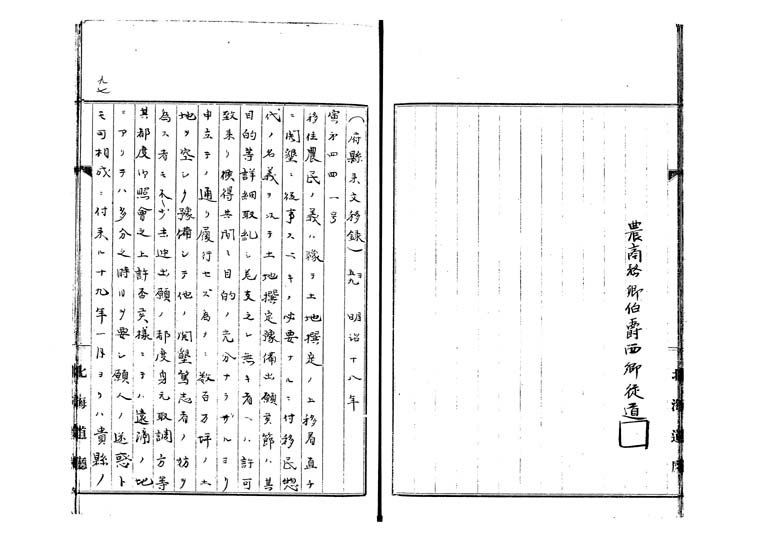 農商務卿伯爵西郷従道
(府縣来文移録) 明治十八年
寅第四四一号
移住農民ノ義ハ豫ヲ土地撰定ノ上移居直チ
ニ開墾ニ従事スヘキハ必要ナルニ付移民惣
代ノ名義ヲ以テ土地撰定豫備出願ノ節ハ其
目的等詳細取糺シ差支ヘ無キ者ヘハ許可
致来リ候得共間ニ目的ノ充分ナラザルヨリ
申立テノ通リ履行セズ為ノニ数百万坪ノ土
地ヲ空シク豫備シテ他ノ開墾篤志者ノ妨ケ
為ス者モ不少去迚出願ノ都度身元取調方等
其都度御照會之上許否候様ニテハ遠隔ノ地
ニアリテハ多分之時日ヲ要シ願人ノ迷惑ト
モ可相成ニ付来ル十九年一月ヨリハ貴縣ノ
北海道廳
北海道廳
九七